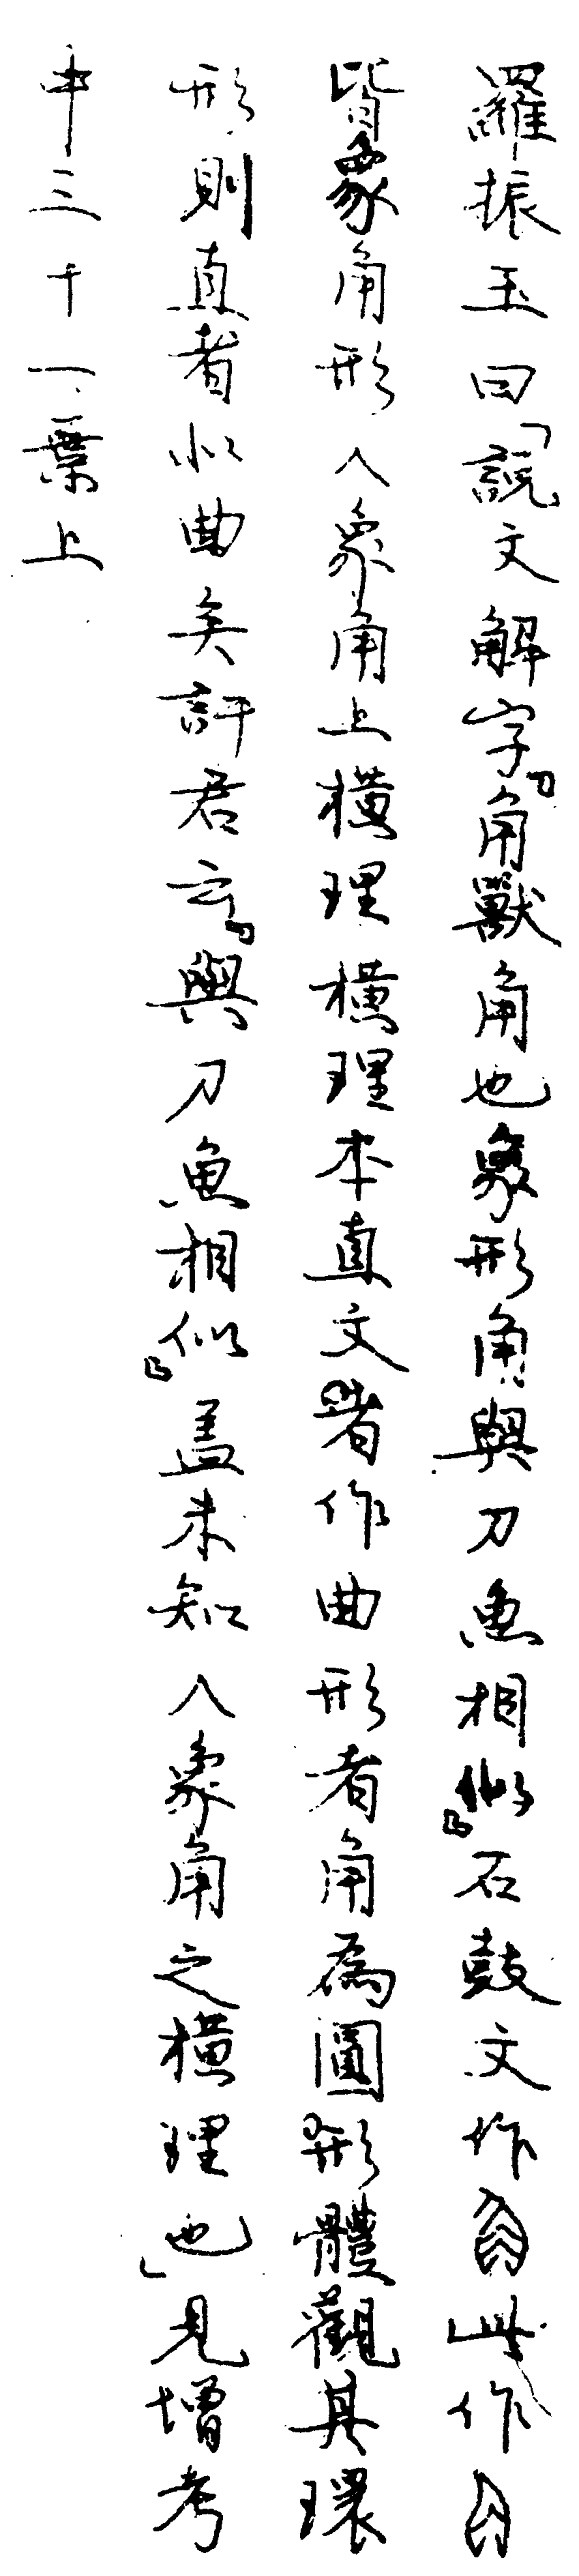 羅振玉曰「說文解字『角獸角也象形角與刀魚相似』石鼓文作此作
皆象角形人象角上橫理橫理本直文者作曲形者角為圓形體觀其環
形則直者似曲矣許君云『與刀魚相似』蓋未知人象角之橫理也」見增考
中三十一葉上